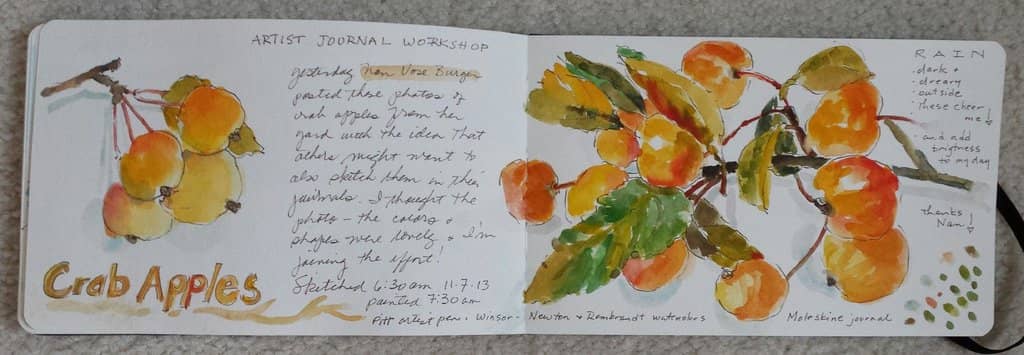 ARTIST JOURNAL WORKSHOP
yesterday Nan Vose Burges
posted these photos of
crab apples from her
yard with the idea that
others might want to
also sketch them in their
journals. I thought the
photo – the colors &
shapes were lovely, & I'm
joining the effort!
Sketched 6:30am 11.7.13
painted 7:30am
Crab Apples
Pitt artist pen. Winsor - Newton & Rembrandt watercolors Moleskine journal
RAIN
· dark &
dreary
· outside
· These cheer
me!
· and add
brightness
to my day
thanks
Nan!